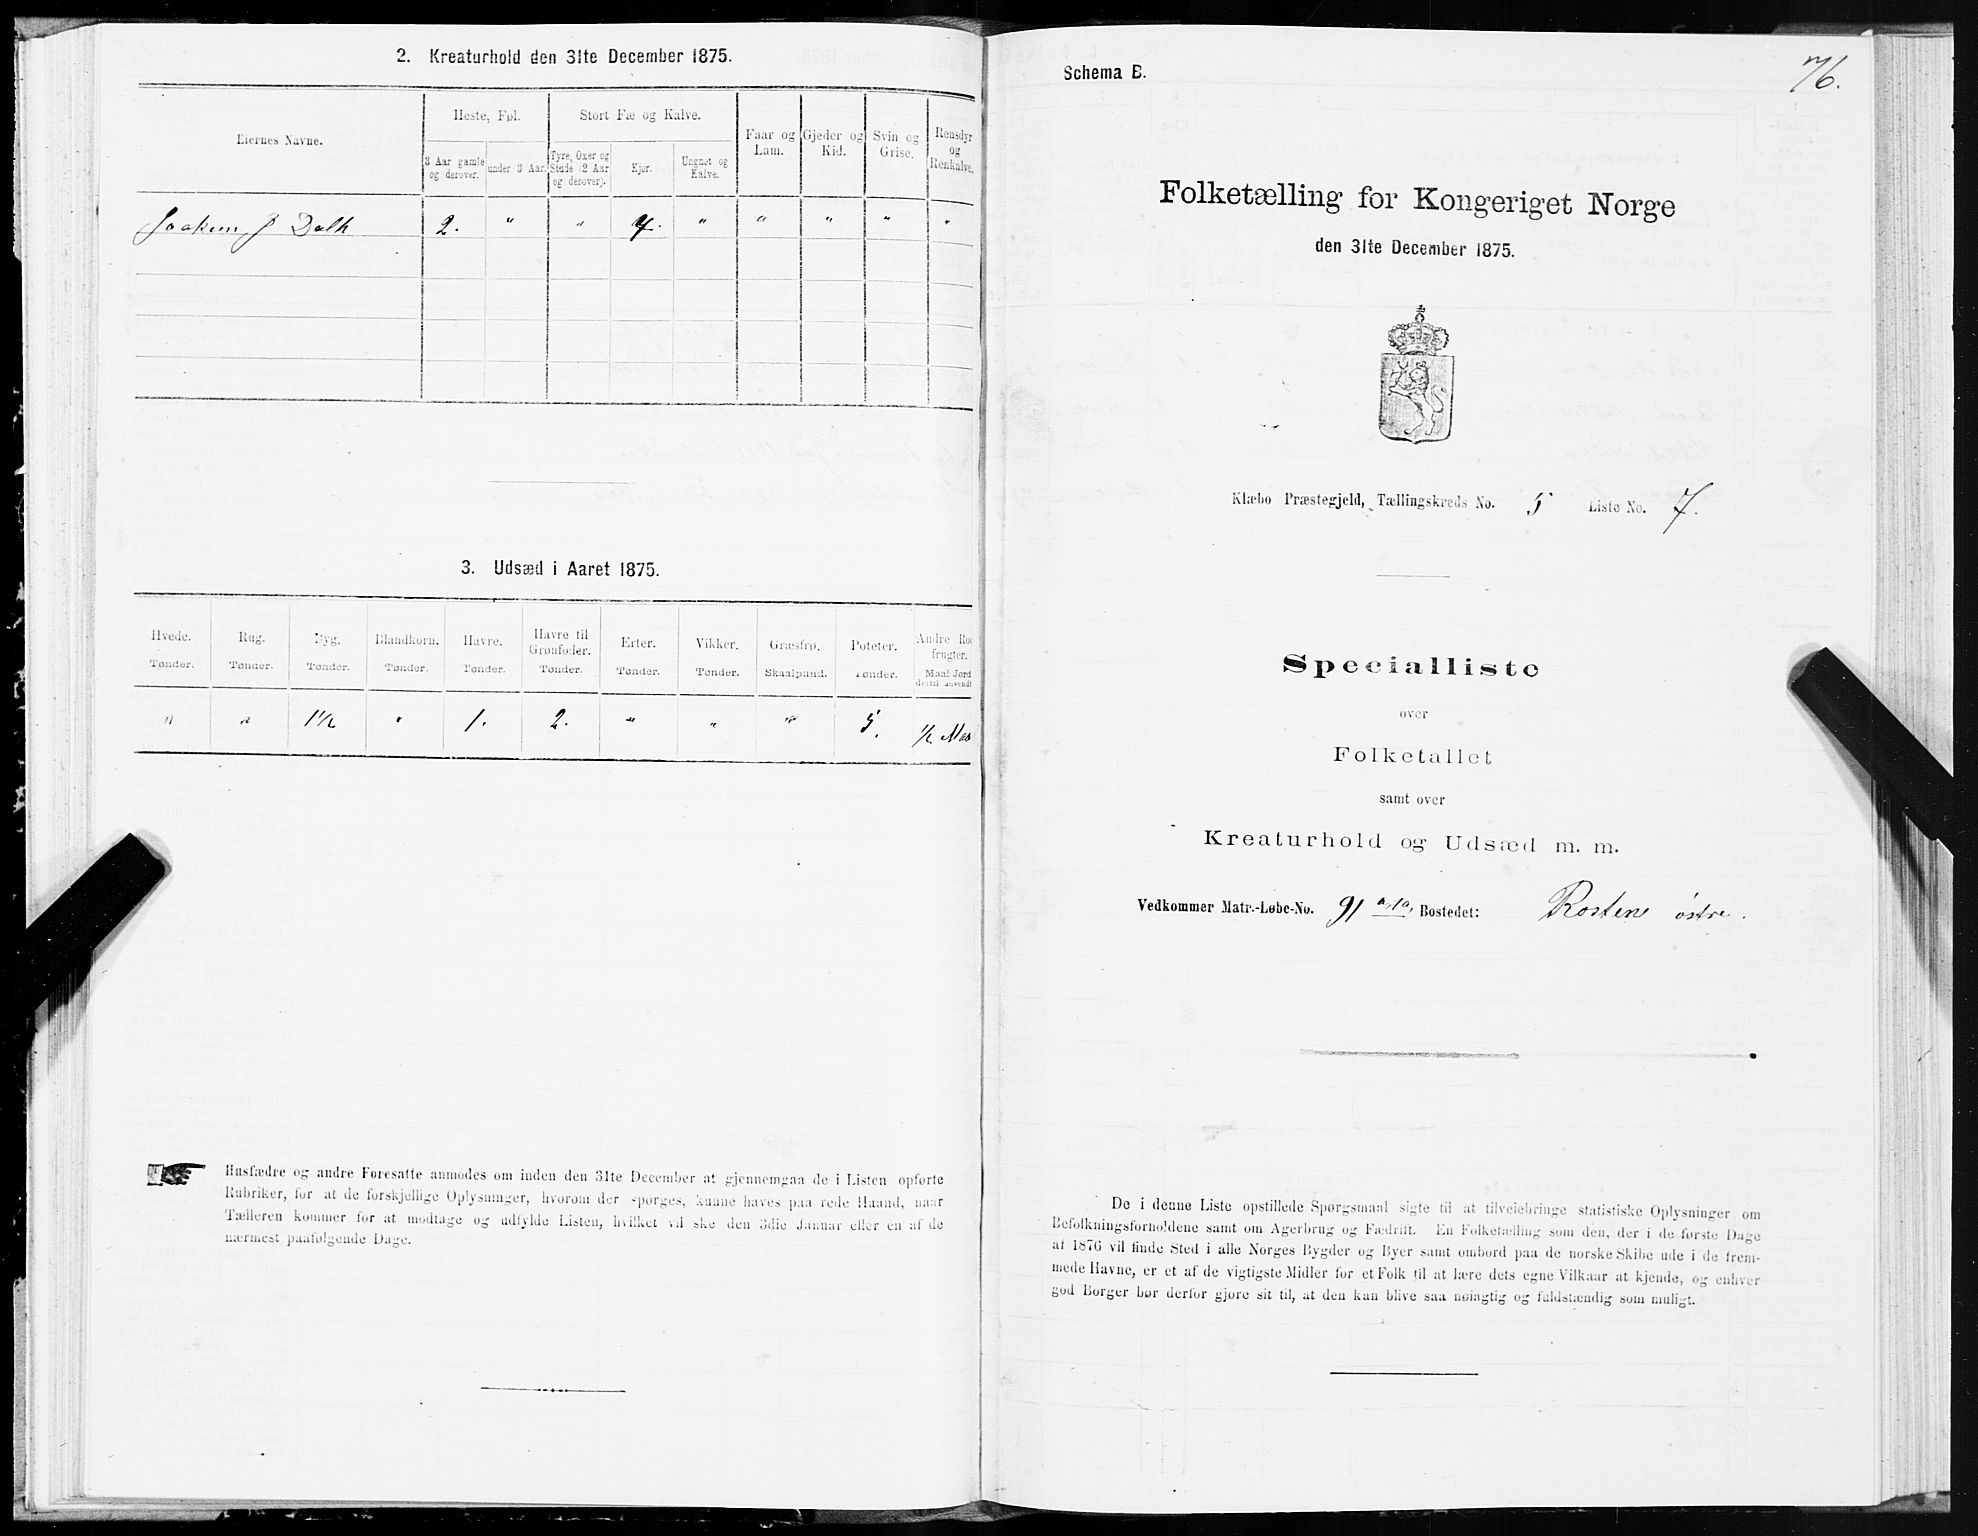 2. Kreaturhold den 31te December 1875.
Eiernes Navne.
Heste, Føl.
Stort Fæ og Kalve.
Faar og Lam.
Gjeder og Kid.
Svin og Grise.
Rensdyr og Renkalve.
3 Aar gamle og derover.
under 3 Aar.
Tyre, Oxer og Stude (2 Aar og derover).
Kjør.
Ungnøt og Kalve.
Dalh 2. " " 4. " " " " "
3. Udsæd i Aaret 1875.
Hvede. Rug. Byg. Blandkorn. Havre. Havre til Grønfoder. Erter. Vikker. Græsfrø. Poteter. Andre Rodfrugter.
Tønder. Tønder. Tønder. Tønder. Tønder. Tønder. Tønder. Tønder. Skaalpund. Tønder. Maal Jord dertil anvendt
" " 1½ " 1. 2. " " " 5. ½ Maa
Husfædre og andre Foresatte anmodes om inden den 31te December at gjennemgaa de i Listen opførte
Rubriker, for at de forskjellige Oplysninger, hvorom der spørges, kunne haves paa rede Haand, naar
Tælleren kommer for at modtage og udfylde Listen, hvilket vil ske den 3die Januar eller en af de
nærmest paafølgende Dage.
76.
Schema B.
Folketælling for Kongeriget Norge
den 31te December 1875.
Klæbo Præstegjeld, Tællingskreds No. 5 Liste No. 7.
Specialliste
over
Folketallet
samt over
Kreaturhold og Udsæd m. m.
Vedkommer Matr.-Løbe-No. 91 a, 1a, Bostedet: Rostene østre.
De i denne Liste opstillede Spørgsmaal sigte til at tilveiebringe statistiske Oplysninger om
Befolkningsforholdene samt om Agerbrug og Fædrift. En Folketælling som den, der i de første Dage
af 1876 vil finde Sted i alle Norges Bygder og Byer samt ombord paa de norske Skibe ude i de frem-
mede Havne, er et af de vigtigste Midler for et Folk til at lære dets egne Vilkaar at kjende, og enhver
god Borger bør derfor gjøre sit til, at den kan blive saa nøiagtig og fuldstændig som muligt.